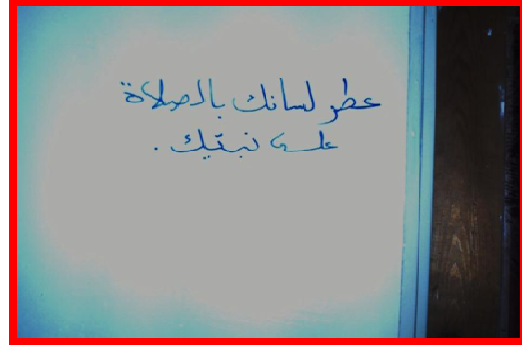 عطر لسانك بالصلاة
على نبيك .